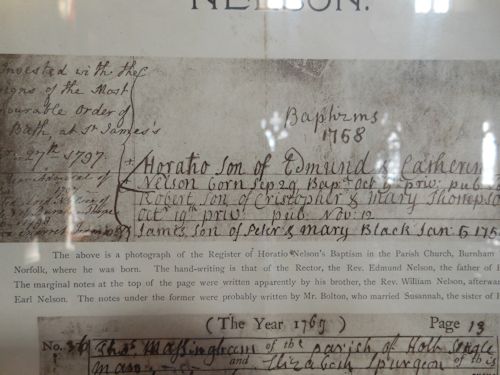 NELSON.
invested with the
signs of the Most
honourable Order of
Bath, at St James's
27th 1797.
Baptisms
1758
Horatio Son of Edmund & Catherine
Nelson born Sep 29 Bap. Oct priv: pub
Robert, Son of Cristopher & Mary Thompson
Oct 19th priv: pub. Nov: 12
James Son of Peter & Mary Black Jan 5 175
The above is a photograph of the Register of Horatio Nelson's Baptism in the Parish Church, Burnham
Norfolk, where he was born. The hand-writing is that of the Rector, the Rev. Edmund Nelson, the father of
The marginal notes at the top of the page were written apparently by his brother, the Rev. William Nelson, afterwa
Earl Nelson. The notes under the former were probably written by Mr. Bolton, who married Susannah, the sister of
(The Year 1769) Page 13
No. 36 Thos. Massingham of the parish of Holt Single
and Elizabeth Spurgeon of this